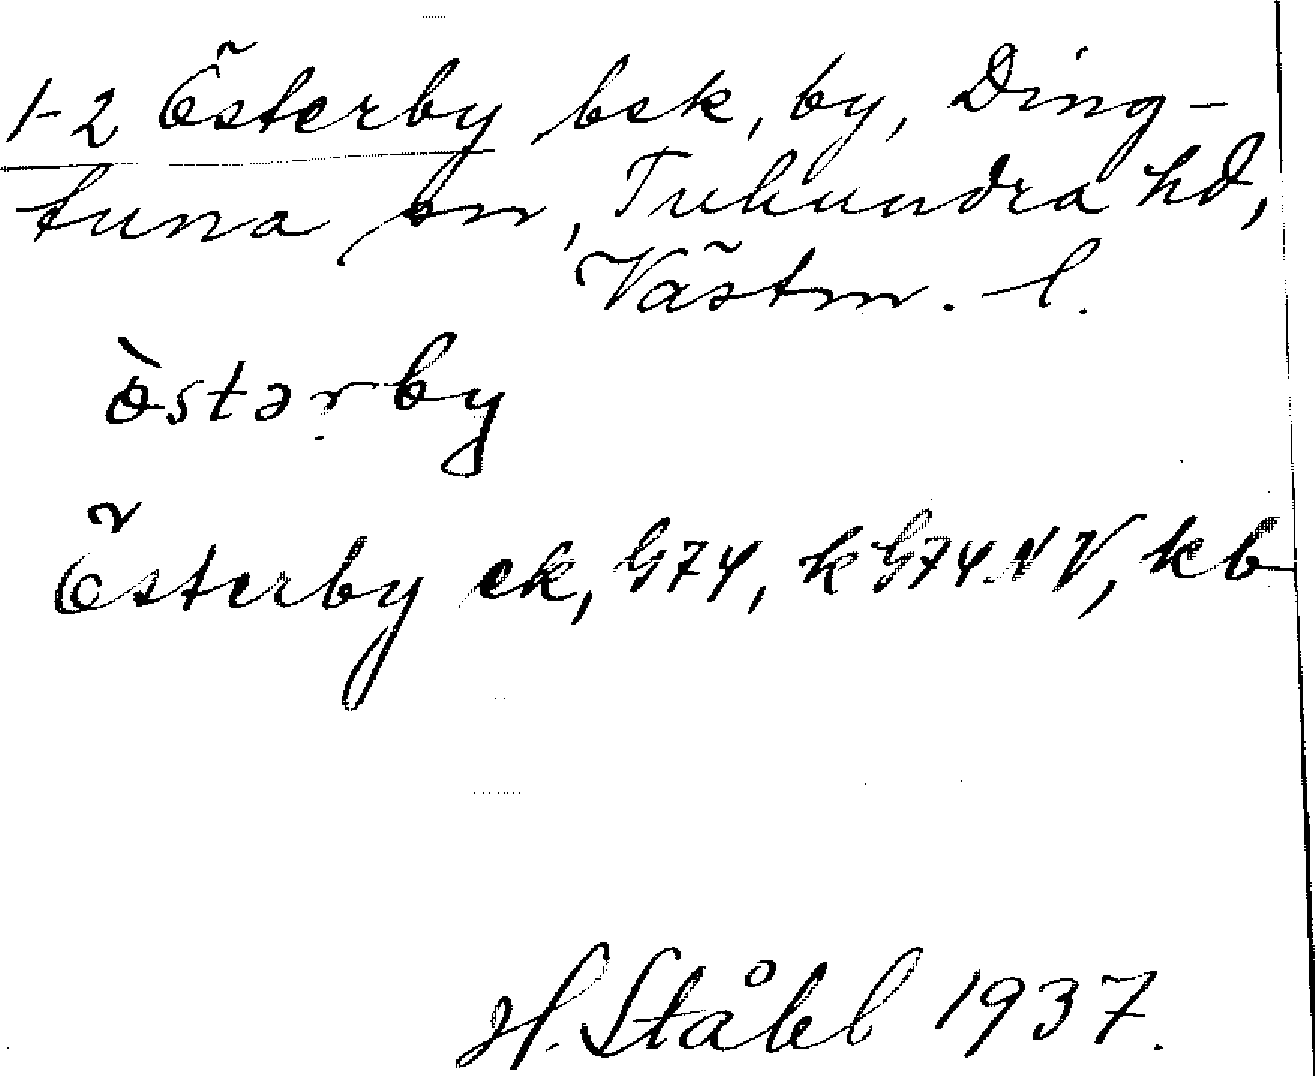 1-2 Österby bsk, by, Ding-
tuna sn, Tuhundra hd,
Västm. l.
ò̈stərby
Österby ek, G74, k G74 NV, kb
H. Ståhl 1937.